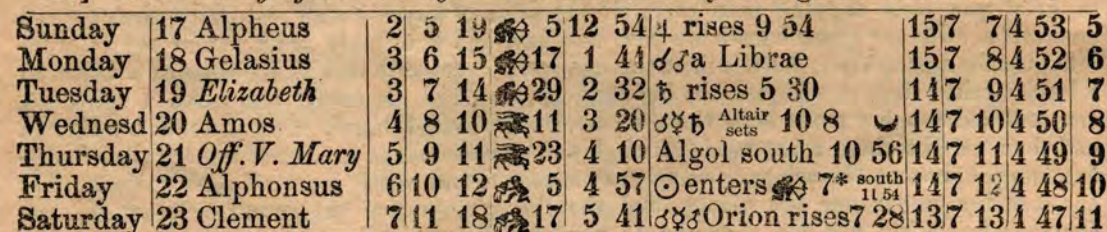 Sunday 17 Alpheus 2 5 19 ♐ 5 12 54 ♃ rises 9 54 15 7 7 4 53 5
Monday 18 Gelasius 3 6 15 ♐ 17 1 41 ☌♂a Librae 15 7 8 4 52 6
Tuesday 19 Elizabeth 3 7 14 ♐ 29 2 32 ♄ rises 5 30 14 7 9 4 51 7
Wednesd 20 Amos 4 8 10 11 3 20 ☌☿♄ Altair sets 10 8 14 7 10 4 50 8
Thursday 21 Off. V. Mary 5 9 11 23 4 10 Algol south 10 56 14 7 11 4 49 9
Friday 22 Alphonsus 6 10 12 5 4 57 ☉ enters ♐ 7* south 11 54 14 7 12 4 48 10
Saturday 23 Clement 7 11 18 17 5 41 ☌☿♂ Orion rises 7 28 13 7 13 4 47 11